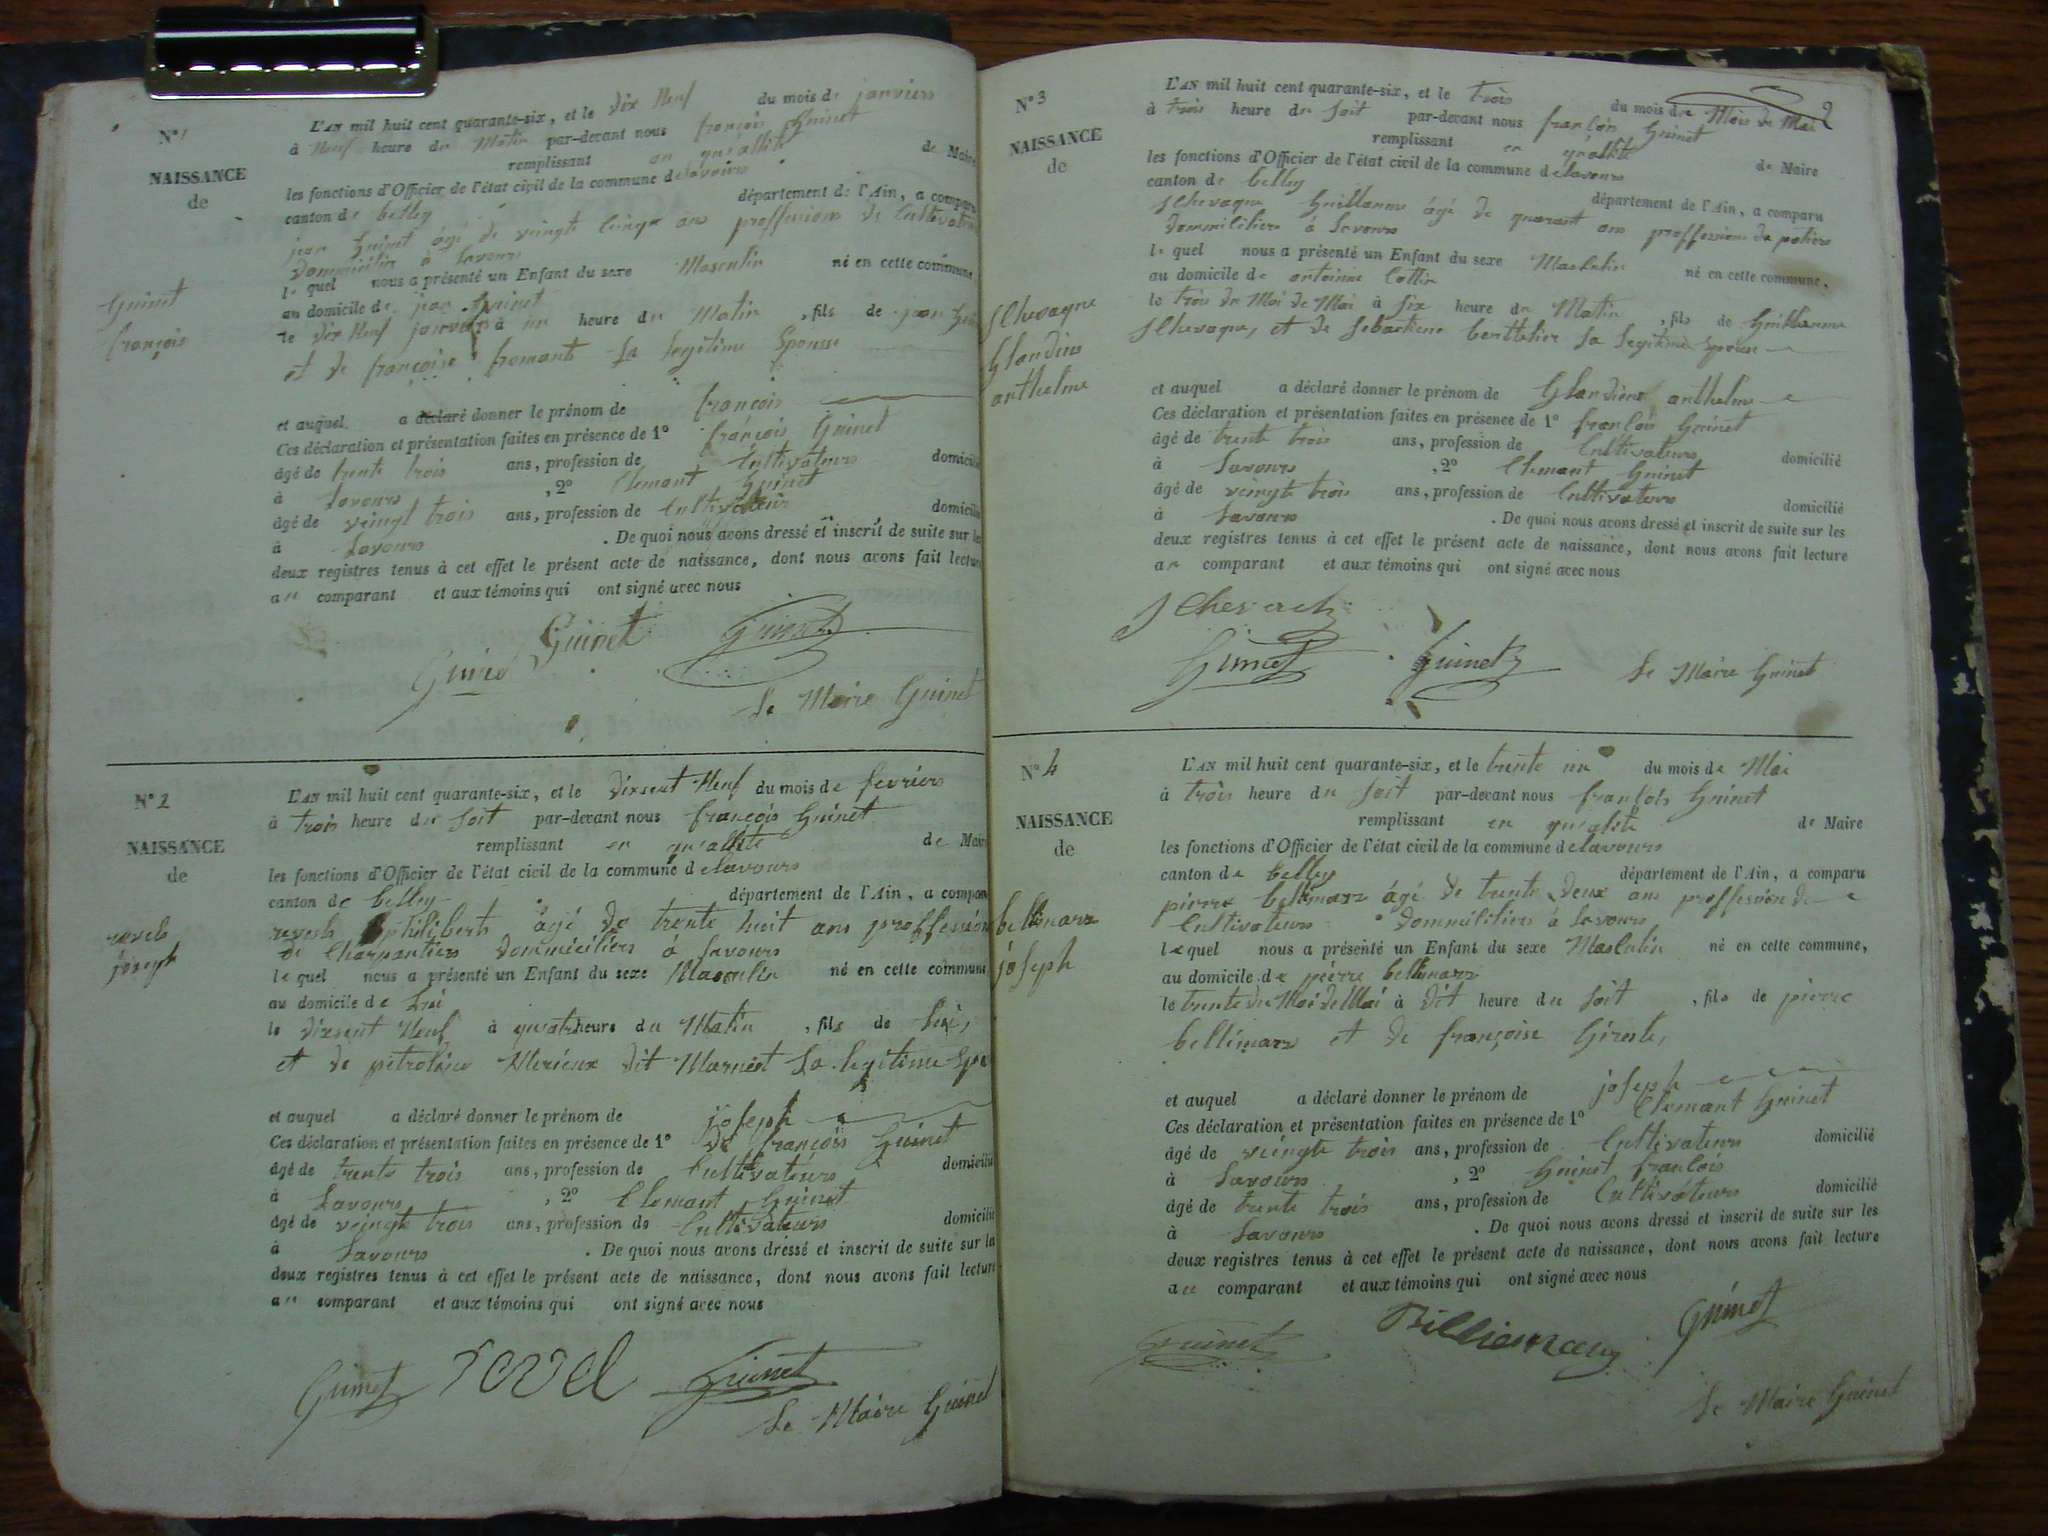 N° 1
NAISSANCE
de
Guinet
françois
L'AN mil huit cent quarante-six, et le dix Neuf du mois de janviers
à Neuf heure du Matin par-devant nous françois Guinet
remplissant en quallité de Maire
les fonctions d'Officier de l'état civil de la commune de lavours
canton de belley département de l'Ain, a comparu
jean Guinet âgé de veingte cinqx ans proffession de Cultivateu
dommicilie à lavours
le quel nous a présenté un Enfant du sexe Masculin né en cette commune
au domicile de jean Guinet
le dix Neuf janviers à un heure du Matin, fils de jean Guin
et de françoise fromant La legitime Epouse
et auquel a déclaré donner le prénom de françois
Ces déclaration et présentation faites en présence de 1° françois Guinet
âgé de trente trois ans, profession de Cultivateurs domicilié
à Lavours, 2° Clemant Guinet
âgé de veingt trois ans, profession de Cultivateur domicilié
à Lavours. De quoi nous avons dressé et inscrit de suite sur les
deux registres tenus à cet effet le présent acte de naissance, dont nous avons fait lecture
au comparant et aux témoins qui ont signé avec nous
Guinet Guinet Guinet
Le Maire Guinet
N° 2
NAISSANCE
de
revels
joseph
L'AN mil huit cent quarante-six, et le dixsent Neuf du mois de fevriers
à trois heure du soit par-devant nous françois Guinet
remplissant en quallité de Maire
les fonctions d'Officier de l'état civil de la commune de lavours
canton de belley département de l'Ain, a comparu
philiberts âgé de trente huit ans proffession
de Charpantiers dommiciliers à Lavours
le quel nous a présenté un Enfant du sexe Masculin né en cette commune
au domicile de Lui
le dixsent Neuf à quatrheure du Matin, fils de Lui,
et de petroline Merieux dit Marniet La legitime Epo
et auquel a déclaré donner le prénom de joseph
Ces déclaration et présentation faites en présence de 1° de françois Guinet
âgé de trente trois ans, profession de Cultivateurs domicilié
à Lavours, 2° Clemant Guinet
âgé de veingte trois ans, profession de Cultivateurs domicilié
à Lavours. De quoi nous avons dressé et inscrit de suite sur la
deux registres tenus à cet effet le présent acte de naissance, dont nous avons fait lecture
au comparant et aux témoins qui ont signé avec nous
Guinet revel Guinet
Le Maire Guinet
2
N° 3
NAISSANCE
de
Glaudius
anthelme
L'AN mil huit cent quarante-six, et le trois du mois du Mois de Mai
à trois heure du soit par-devant nous françois Guinet
remplissant en quallité de Maire
les fonctions d'Officier de l'état civil de la commune de lavours
canton de belley département de l'Ain, a comparu
Guillaume âgé de quarant ans proffession de potiers
dommiciliers à Lavours
le quel nous a présenté un Enfant du sexe Masculin né en cette commune,
au domicile de antoinne Collin
le trois du Moi de Mai à six heure du Matin, fils de Guillaume
et de Sebastiene berthelier La legitime Epouse
et auquel a déclaré donner le prénom de Glaudius anthelme
Ces déclaration et présentation faites en présence de 1° françois Guinet
âgé de trente trois ans, profession de Cultivateurs domicilié
à Lavours, 2° Clemant Guinet
âgé de veingte trois ans, profession de Cultivateurs domicilié
à Lavours. De quoi nous avons dressé et inscrit de suite sur les
deux registres tenus à cet effet le présent acte de naissance, dont nous avons fait lecture
au comparant et aux témoins qui ont signé avec nous
Guinet Guinet Le Maire Guinet
N° 4
NAISSANCE
de
bellimarz
joseph
L'AN mil huit cent quarante-six, et le trente un du mois de Mai
à trois heure du soit par-devant nous françois Guinet
remplissant en qualite de Maire
les fonctions d'Officier de l'état civil de la commune de lavours
canton de belley département de l'Ain, a comparu
pierre bellimarz âgé de trente deux ans proffession de
Cultivateurs dommiliciers à Lavours
le quel nous a présenté un Enfant du sexe Masculin né en cette commune,
au domicile de pierre bellimarz
le trente du Moi de Mai à dit heure du soit, fils de pierre
bellimarz et de françoise
et auquel a déclaré donner le prénom de joseph
Ces déclaration et présentation faites en présence de 1° Clemant Guinet
âgé de veingte trois ans, profession de Cultivateurs domicilié
à Lavours, 2° Guinet françois
âgé de trente trois ans, profession de Cultivateurs domicilié
à Lavours. De quoi nous avons dressé et inscrit de suite sur les
deux registres tenus à cet effet le présent acte de naissance, dont nous avons fait lecture
au comparant et aux témoins qui ont signé avec nous
Guinet Billiemaz Guinet
Le Maire Guinet